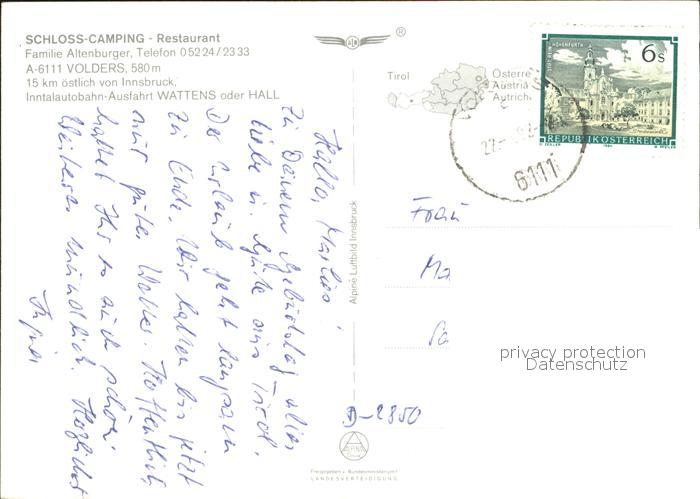 SCHLOSS-CAMPING - Restaurant
Familie Altenburger, Telefon 05224/2333
A-6111 VOLDERS, 580 m
15 km östlich von Innsbruck,
Inntalautobahn-Ausfahrt WATTENS oder HALL
®
Tirol
Österre
Austria
Autrich
STIFT REIN-HOHENFURTH
6s
REPUBLIK ÖSTERREICH
O. ZEILLER 1984
6111
Alpine Luftbild Innsbruck
Hallo,
Zu Deinem Geburtstag alles
Liebe u. Gute aus Tirol.
Der Urlaub geht langsam
zu Ende. Wir hatten bis jetzt
nur gutes Wetter. Hoffentlich
habt Ihr es auch schön.
Weiteres mündlich. Herzlichst
Frau
Ma
Sa
privacy protection
Datenschutz
D-2850
ALPINE
Freigegeben v. Bundesministerium f.
LANDESVERTEIDIGUNG